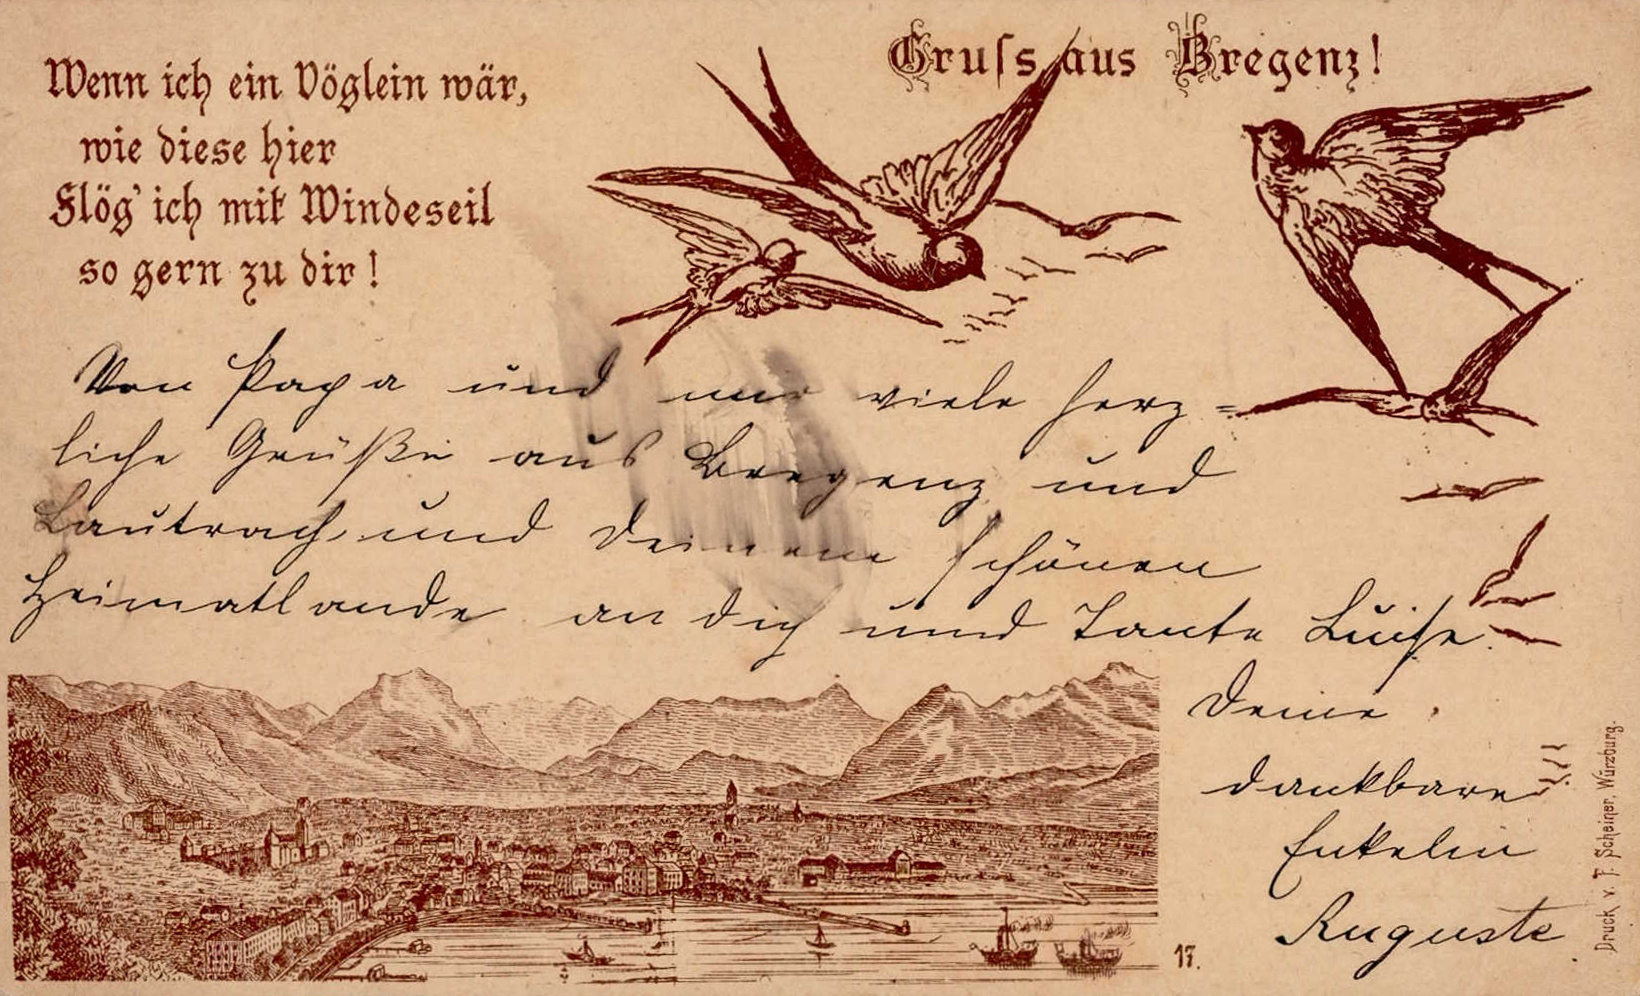 Gruss aus Bregenz!
Wenn ich ein Vöglein wär,
wie diese hier
Flög' ich mit Windeseil
so gern zu dir!
Von Papa und mir viele herz=
liche Grüße aus Bregenz und
Lautrach und Deinem schönen
Heimatlande an dich und Tante Luise.
Deine
dankbare
Enkelin
Auguste
17.
Druck v. T. Scheiner, Würzburg.